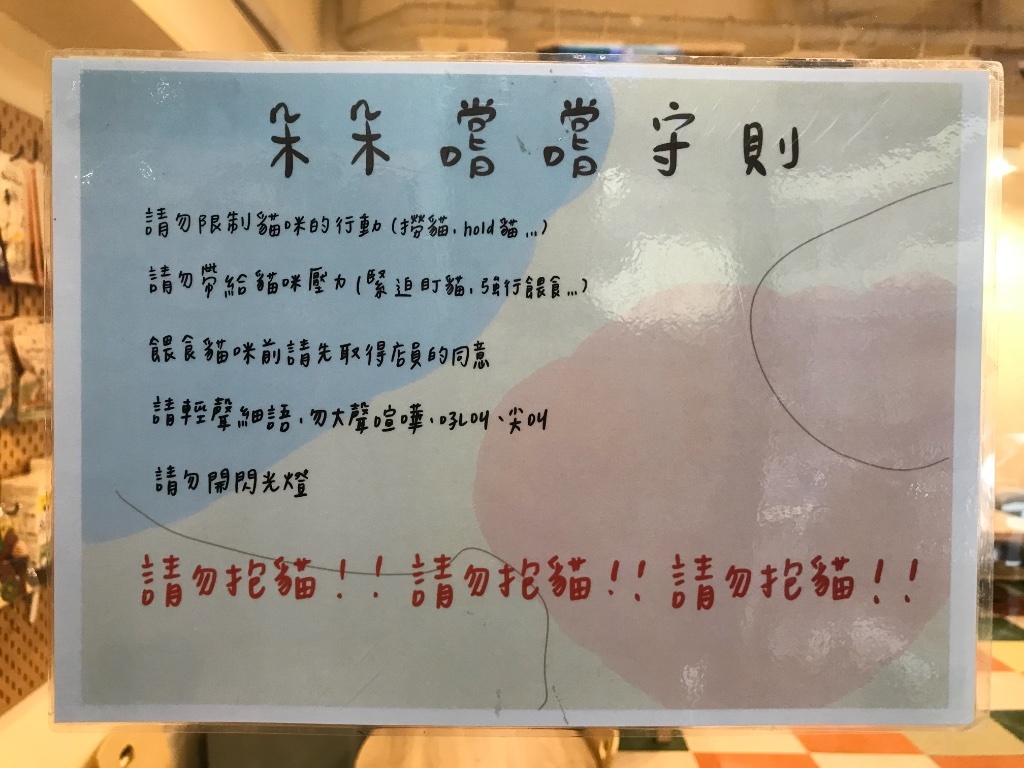 朵朵噹噹守則
請勿限制貓咪的行動(撈貓、hold貓...)
請勿帶給貓咪壓力(緊迫盯貓、強行餵食...)
餵食貓咪前請先取得店員的同意
請輕聲細語、勿大聲喧嘩、吼叫、尖叫
請勿開閃光燈
請勿抱貓!!請勿抱貓!!請勿抱貓!!